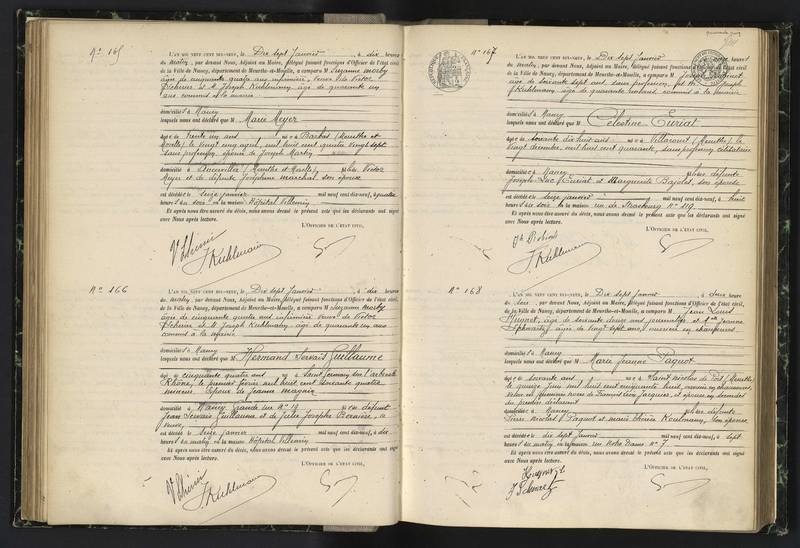 N° 165
L'AN MIL NEUF CENT DIX-NEUF, le Dix sept Janvier à dix heures
du matin, par devant Nous, Adjoint au Maire, délégué faisant fonctions d'Officier de l'état civil
de la Ville de Nancy, département de Meurthe-et-Moselle, a comparu M Suzanne
âgée de cinquante quatre ans infirmière, veuve de Victor
et M Joseph Kuhlmann âgé de quarante un
ans commis à la mairie
domiciliés à Nancy
lesquels nous ont déclaré que M Marie Meyer
âgée de trente un ans née à Barbas (Meurthe et
Moselle) le vingt cinq mil huit cent quatre vingt sept
sans profession, épouse de Joseph Martin
domiciliée à (Meurthe et Moselle) fille Victor
Meyer et de défunte Joséphine Marchal son épouse
est décédée le seize janvier mil neuf cent dix-neuf, à quatre
heures du soir en la maison Hôpital Villemin
Et après nous être assuré du décès, nous avons dressé le présent acte que les déclarants ont signé
avec Nous après lecture.
L'OFFICIER DE L'ÉTAT CIVIL,
J Kuhlmann
N° 166
L'AN MIL NEUF CENT DIX-NEUF, le Dix sept Janvier à dix heures
du matin, par devant Nous, Adjoint au Maire, délégué faisant fonctions d'Officier de l'état civil,
de la Ville de Nancy, département de Meurthe-et-Moselle, a comparu M Suzanne
âgée de cinquante quatre ans infirmière veuve de Victor
et M Joseph Kuhlmann âgé de quarante un ans
commis à la mairie
domiciliés à Nancy
lesquels nous ont déclaré que M Hermand Servais Guillaume
âgé de cinquante quatre ans né à Saint Germain sur l'arbresle
Rhône, le premier février mil huit cent soixante quatre
Époux de Jeanne
domicilié à Nancy Grande rue N° 19 fils de défunt
Jean Servais Guillaume et de Julie Josèphe
veuve
est décédé le seize janvier mil neuf cent dix-neuf, à dix
heures du matin en la maison Hôpital Villemin
Et après nous être assuré du décès, nous avons dressé le présent acte que les déclarants ont signé
avec Nous après lecture.
L'OFFICIER DE L'ÉTAT CIVIL,
J Kuhlmann
N° 167
L'AN MIL NEUF CENT DIX-NEUF, le Dix sept Janvier heures
du matin, par devant Nous, Adjoint au Maire, délégué faisant fonctions d'Officier de l'état civil
de la Ville de Nancy, département de Meurthe-et-Moselle, a comparu M Joseph
âgé de soixante sept ans, sans profession, et M Joseph
Kuhlmann âgé de quarante un ans, commis à la mairie
domiciliés à Nancy
lesquels nous ont déclaré que M Célestine Curiat
âgée de soixante dix huit ans née à Villacourt (Meurthe) le
vingt décembre mil huit cent quarante, sans profession célibataire
domiciliée à Nancy fille de défunts
Joseph Luc Curiat et Marguerite son épouse
est décédée le seize janvier mil neuf cent dix-neuf, à huit
heures du soir en la maison rue de Strasbourg N° 119
Et après nous être assuré du décès, nous avons dressé le présent acte que les déclarants ont signé
avec Nous après lecture.
L'OFFICIER DE L'ÉTAT CIVIL,
J Kuhlmann
N° 168
L'AN MIL NEUF CENT DIX-NEUF, le Dix sept Janvier à deux heures
du soir, par devant Nous, Adjoint au Maire, délégué faisant fonctions d'Officier de l'état civil,
de la Ville de Nancy, département de Meurthe-et-Moselle, a comparu M Jean Louis
âgé de soixante douze ans journalier et Jeanne
Schwartz, âgée de vingt sept ans, ouvrière en chaussures
domiciliés à Nancy
lesquels nous ont déclaré que M Marie Jeanne Paquot
âgée de soixante ans née à Saint Nicolas de Port (Meurthe)
le quinze Juin mil huit cent cinquante huit, ouvrière en chaussures
veuve en premières noces de Jacques, et épouse en secondes
du premier déclarant
domiciliée à Nancy fille de défunts
Pierre Nicolas Paquot et Marie Thérèse son épouse
est décédée le dix sept janvier mil neuf cent dix-neuf, à sept
heures du matin, en sa maison rue Notre Dame N° 7
Et après nous être assuré du décès, nous avons dressé le présent acte que les déclarants ont signé
avec Nous après lecture.
L'OFFICIER DE L'ÉTAT CIVIL,
J Schwartz